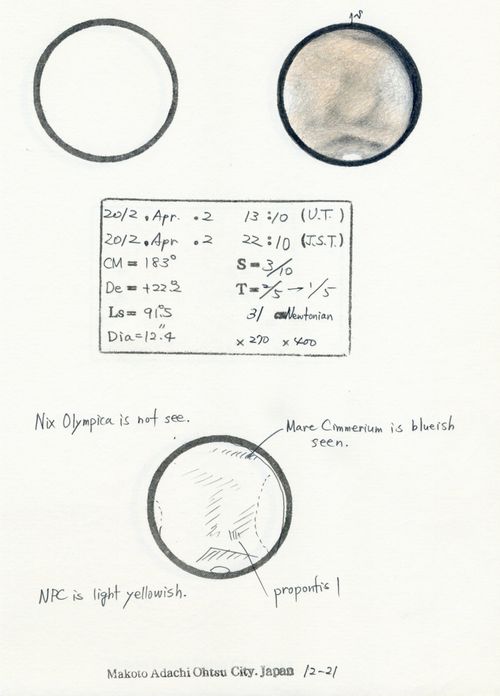 2012. Apr. 2 13:10 (U.T.)
2012. Apr. 2 22:10 (J.S.T.)
CM = 183° S = 3/10
De = +22.2° T = 2/5 → 1/5
Ls = 91.5° 31 cm Newtonian
Dia = 12.4" ×270 ×400
Nix Olympica is not see.
Mare Cimmerium is blueish
seen.
NPC is light yellowish.
propontis 1
Makoto Adachi Ohtsu City. Japan 12-21